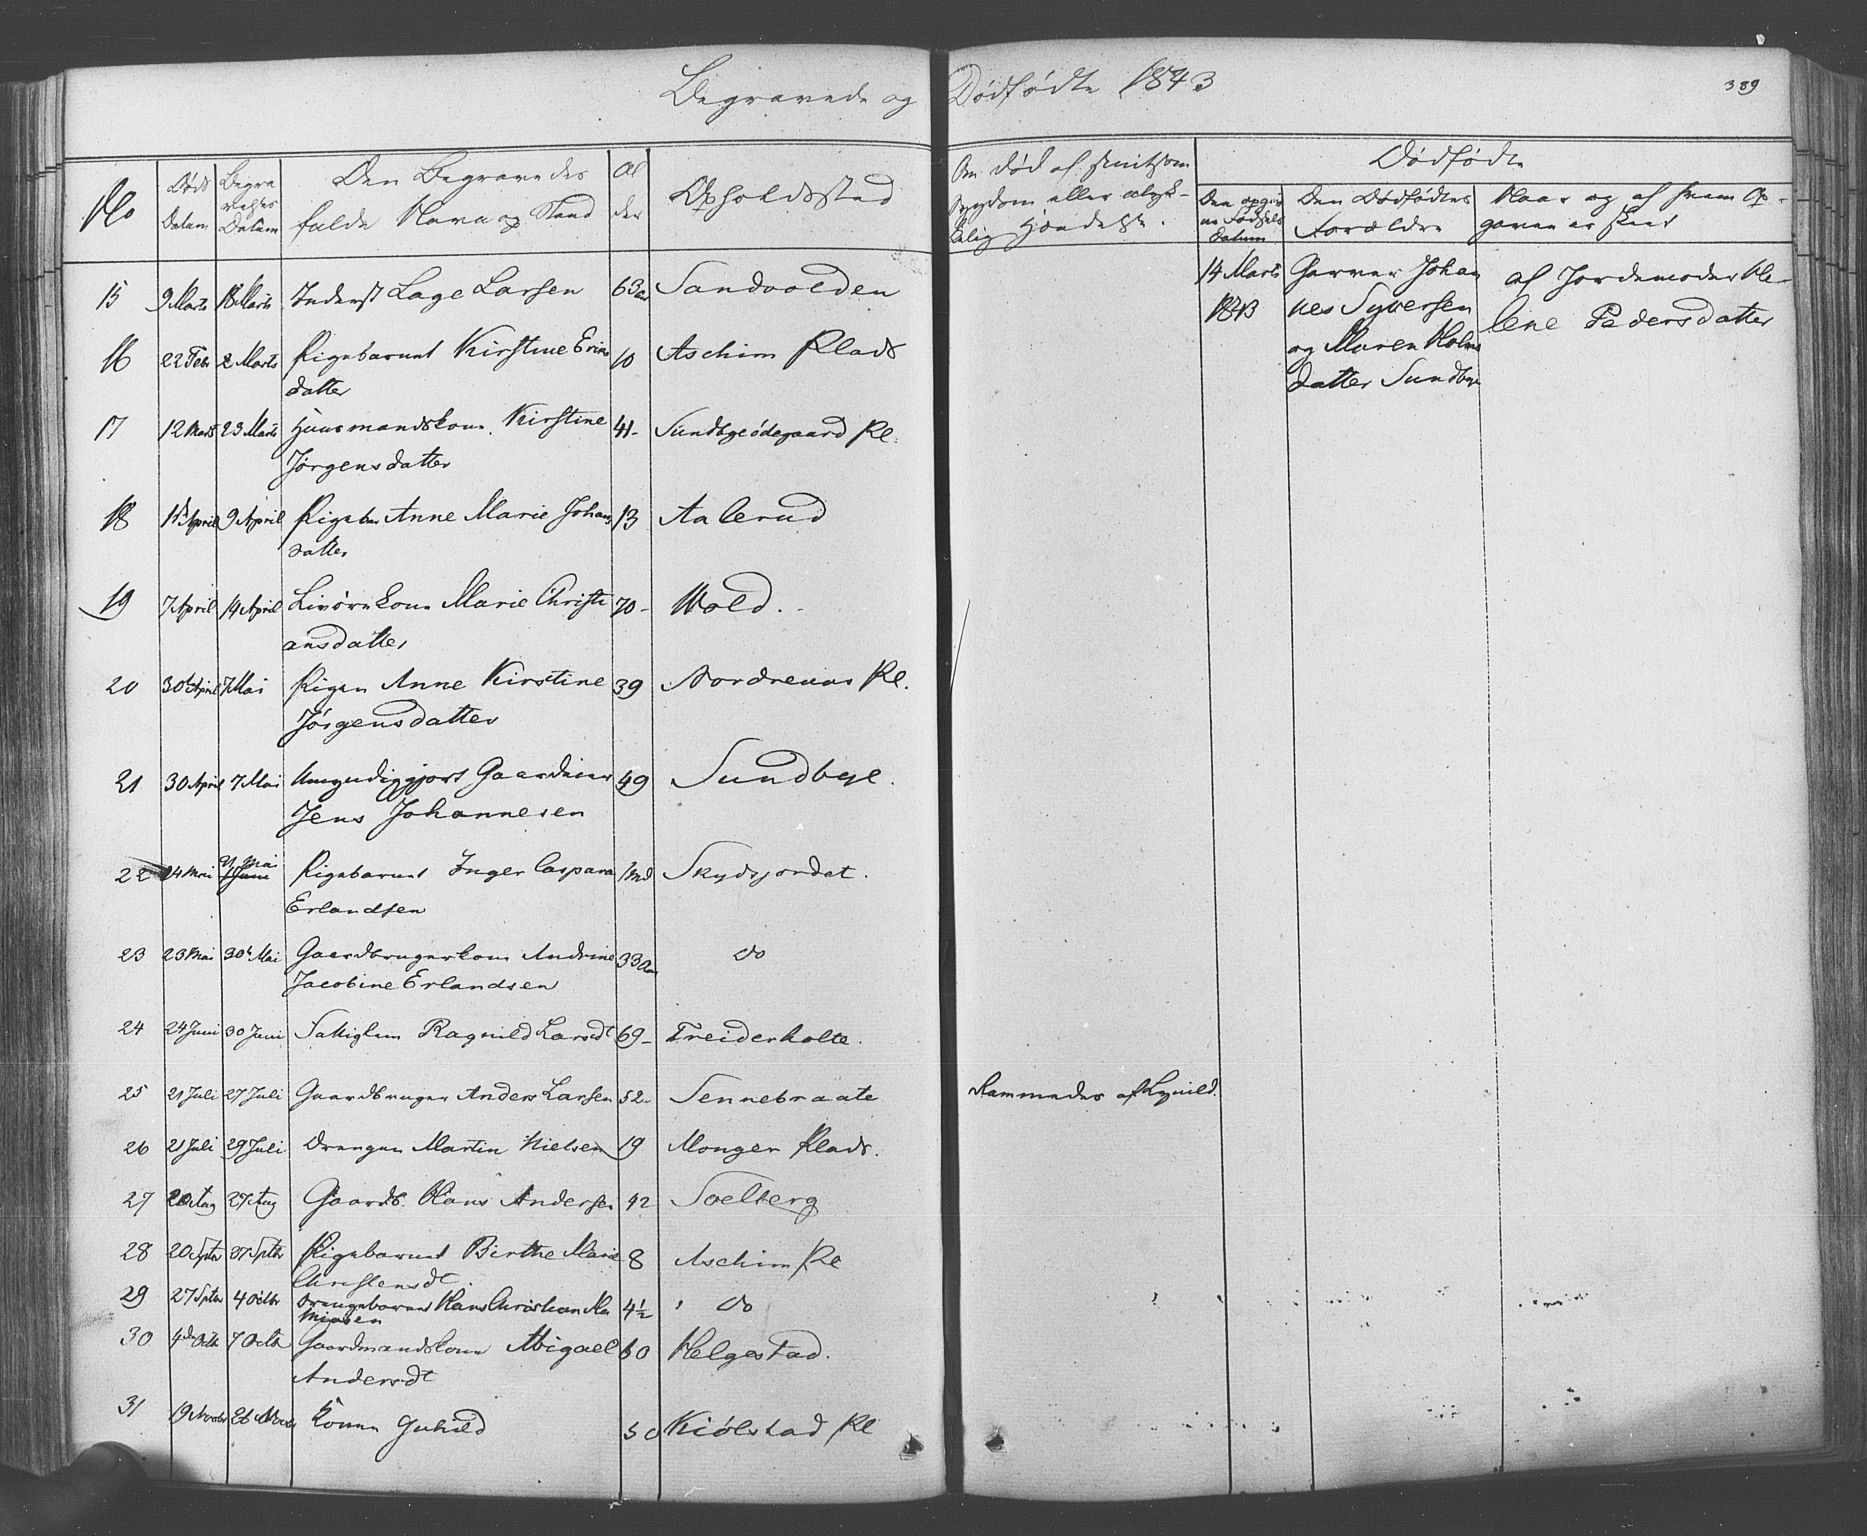 Begravede og Dödfödte 1843
389
No
Döds Datum
Begravelses Datum
Den Begravedes fulde Navn og Stand
Alder
Opholdssted
Om död af smitsom Sygdom eller ulykkelig Hændelse.
Dödfödte
Den opgivne Födsels Datum
Den Dödfödtes Forældre
Naar og af hvem Opgaven er skeet
15 9 Marts 18 Marts Inderst Lage Larsen 63 aar Sandvolden
14 Marts 1843
Garver Johannes Syversen og Maren Holmsdatter Sundbye
af Jordemoder Helene Pedersdatter
16 22 Febr 2 Marts Pigebarnet Kirstine Ericsdatter 10 Aschim Plads
17 12 Marts 23 Marts Huusmandskone Kirstine Jörgensdatter 41- Sundbyeödegaard Pl.
18 1d April 9 April Pigeb. Anne Marie Johansdatter 13 Aalerud
19 7 April 14 April Livörekone Marie Christiansdatter 70- Wold.
20 30 April 7 Mai Pigen Anne Kirstine Jörgensdatter 39 Nordreuus Pl.
21 30 April 7 Mai Umyndiggjort Gaardeier Jens Johannesen 49 Sundbye.
22 24 Mai Mai Juni Pigebarnet Inger Caspara Erlandsen 1 Md Skydsjordet.
23 23 Mai 30 Mai Gaardbrugerkone Andrine Jacobine Erlandsen 33 Aar do
24 24 Juni 30 Juni Ragnild Larsdt 69- Treiderholte.
25 21 Juli 27 Juli Gaardbruger Anders Larsen 52- Sennebraate Rammedes af Lynild.
26 21 Juli 29 Juli Drengen Martin Nielsen 19 Monger Plads.
27 20 Aug 27 Aug Gaardb. Hans Andersen 42 Soelberg
28 20 Sptbr Sptbr Pigebarnet Birthe Marie Christensdt 8 Aschim Pl
29 27 Sptbr 4 Octbr Drengebarnet Hans Christian 4½ do
30 4de Octb 7 Octb Gaardmandskone Abigael Andersdt 60 Helgestad.
31 19 Novbr 26 Novbr Konen Gunhild 50 Kiölstad Pl